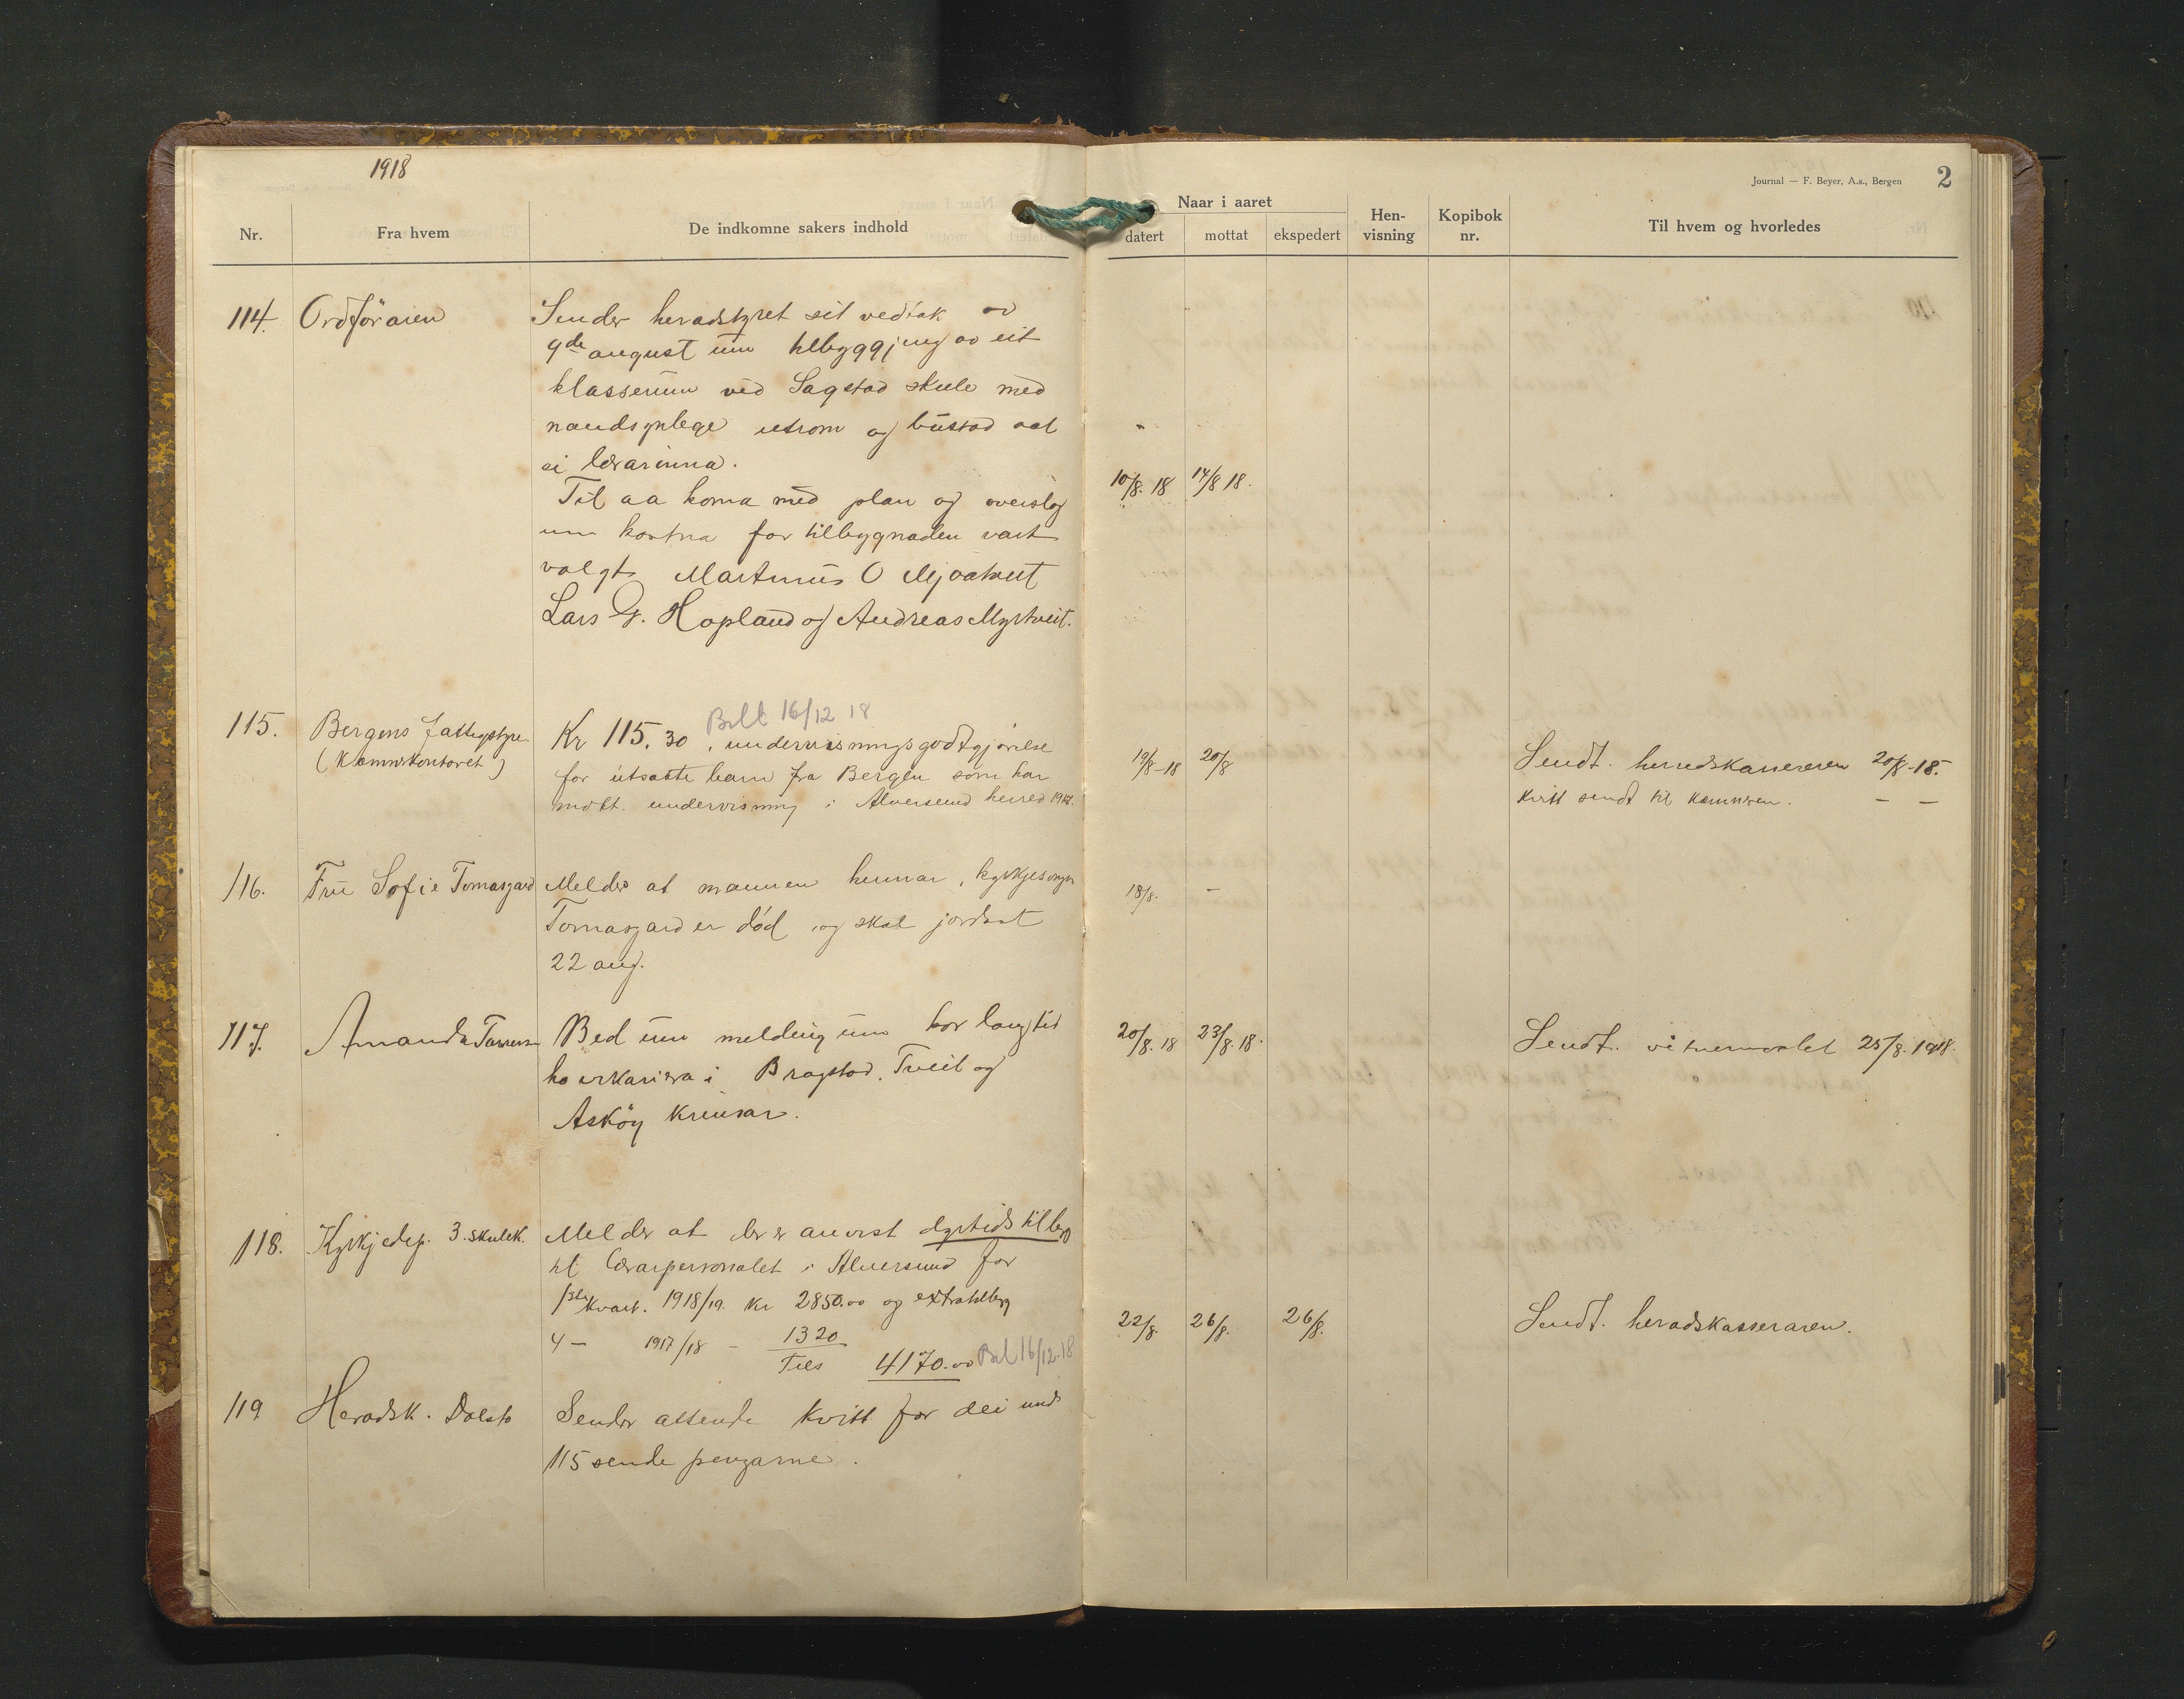 1918
Journal — F. Beyer, A.s., Bergen 2
Nr. Fra hvem De indkomne sakers indhold
Naar i aaret
datert mottat ekspedert
Hen-visning
Kopibok nr.
Til hvem og hvorledes
114. Ordföraren Sender heradstyret sit vedtak av
9de august um tilbyggjing av eit
klasserum ved Sagstad skule med
naudsynlege utrom og bustad aat
ei lærarinna.
10/8. 18 14/8 18.
Til aa koma med plan og overslag
um kostna for tilbygnaden vart
valgt Martinus O Mjaatveit
Lars G. Hopland og Andreas Myrtveit.
Bilt 16/12 18
115. Bergens fattigstyre Kr 115.30, undervisningsgodtgjörelse
(Kæmnerkontoret) for utsatte barn fra Bergen som har
mott. undervisning i Alversund herred 1917.
19/8-18 20/8 Sendt. herredskassereren 20/8-18.
Kvitt sendt til kæmneren. — —
116. Fru Sofie Tomasgard Melder at mannen hennar, kyrkjesongar
Tomasgard er död og skal jordast
22 aug.
18/8. —
117. Amanda Bed um melding um kor lang tid
ho er i Bragstad, Tveit og
Asköy krinsar.
20/8. 18 23/8. 18. Sendt. vitnemaalet 25/8. 1918.
118. Kyrkjedep. 3. skulek. Melder at der er anvist dyrtidstillegg
til lærarpersonalet i Alversund for
1ste kvart. 1918/19. kr 2850.00 og extratillegg
4 — 1917/18 — 1320
Tils 4170.00 Bil 16/12-18
22/8. 26/8. 26/8. Sendt. heradskasseraren.
119 Heradsk. Dolsto Sender attende kvitt for dei und
115 sende pengarne.